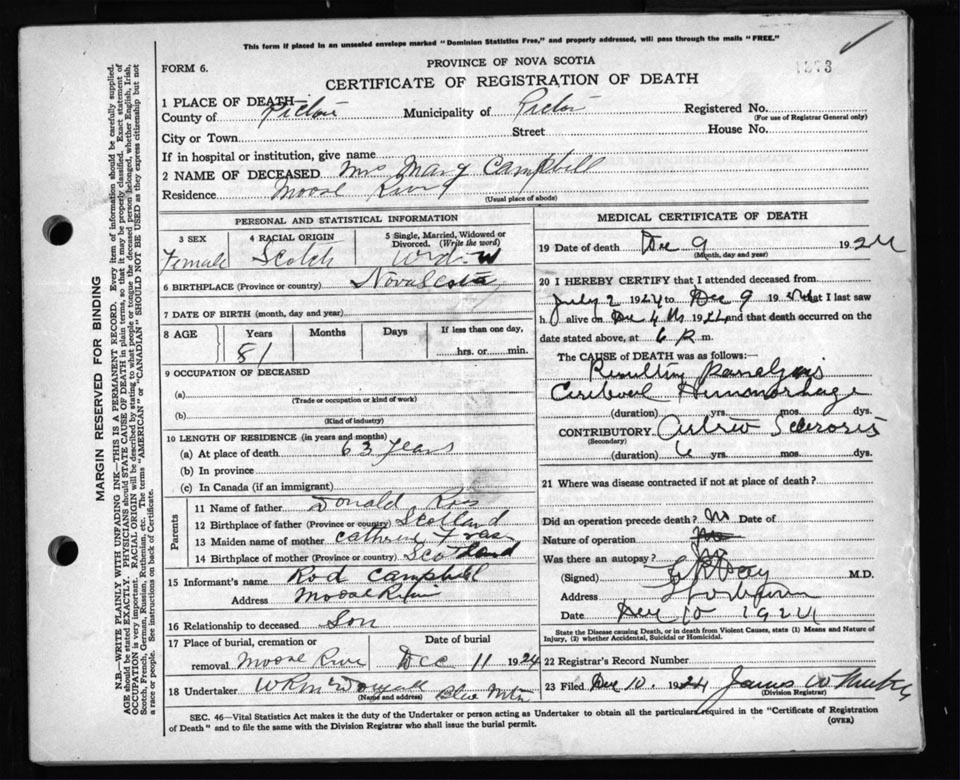 This form if placed in an unsealed envelope marked "Dominion Statistics Free," and properly addressed, will pass through the mails "FREE."
FORM 6.
PROVINCE OF NOVA SCOTIA
CERTIFICATE OF REGISTRATION OF DEATH
MARGIN RESERVED FOR BINDING
N.B.—WRITE PLAINLY WITH UNFADING INK—THIS IS A PERMANENT RECORD. Every item of information should be carefully supplied.
AGE should be stated EXACTLY. PHYSICIANS should STATE CAUSE OF DEATH in plain terms, so that it may be properly classified. Exact statement of
OCCUPATION is very important. RACIAL ORIGIN will be described by stating to what people or tongue the deceased person belonged, whether English, Irish,
Scotch, French, German, Russian, Ruthenian, etc. The terms "AMERICAN" or "CANADIAN" SHOULD NOT BE USED as they express citizenship but not
a race or people. See instructions on back of Certificate.
1 PLACE OF DEATH—
County of Pictou Municipality of Pictou Registered No.
(For use of Registrar General only)
City or Town Street House No.
If in hospital or institution, give name
2 NAME OF DECEASED Mrs Mary Campbell
Residence Moose River
(Usual place of abode)
PERSONAL AND STATISTICAL INFORMATION
3 SEX
Female
4 RACIAL ORIGIN
Scotch
5 Single, Married, Widowed or
Divorced. (Write the word)
Widow
6 BIRTHPLACE (Province or country) Nova Scotia
7 DATE OF BIRTH (month, day and year)
8 AGE Years Months Days If less than one day,
81 hrs. or min.
9 OCCUPATION OF DECEASED
(a)
(Trade or occupation or kind of work)
(b)
(Kind of industry)
10 LENGTH OF RESIDENCE (in years and months)
(a) At place of death 63 years
(b) In province
(c) In Canada (if an immigrant)
Parents
11 Name of father Donald Ross
12 Birthplace of father (Province or country) Scotland
13 Maiden name of mother Cathren Fraser
14 Birthplace of mother (Province or country) Scotland
15 Informant's name Rod Campbell
Address Moose River
16 Relationship to deceased Son
17 Place of burial, cremation or Date of burial
removal Moose River Dec 11 1924
18 Undertaker Blue Mtn
(Name and address)
MEDICAL CERTIFICATE OF DEATH
19 Date of death Dec 9 1924
(Month, day and year)
20 I HEREBY CERTIFY that I attended deceased from
July 2 1924 to Dec 9 1924 that I last saw
h alive on Dec 4th 1924 and that death occurred on
date stated above, at 6 P. m.
The CAUSE OF DEATH was as follows:
Resulting Paralysis
Cerebral Hemmorhage
(duration) yrs. mos. dys.
CONTRIBUTORY Arterio Sclerosis
(Secondary)
(duration) 6 yrs. mos. dys.
21 Where was disease contracted if not at place of death?
Did an operation precede death? No Date of
Nature of operation
Was there an autopsy? No
(Signed) M.D.
Address
Date Dec 10 1924
State the Disease causing Death, or in death from Violent Causes, state (1) Means and Nature of
Injury, (2) whether Accidental, Suicidal or Homicidal.
22 Registrar's Record Number
23 Filed Dec 10. 1924 James W
(Division Registrar)
SEC. 46—Vital Statistics Act makes it the duty of the Undertaker or person acting as Undertaker to obtain all the particulars required in the "Certificate of Registration
of Death" and to file the same with the Division Registrar who shall issue the burial permit.
(OVER)